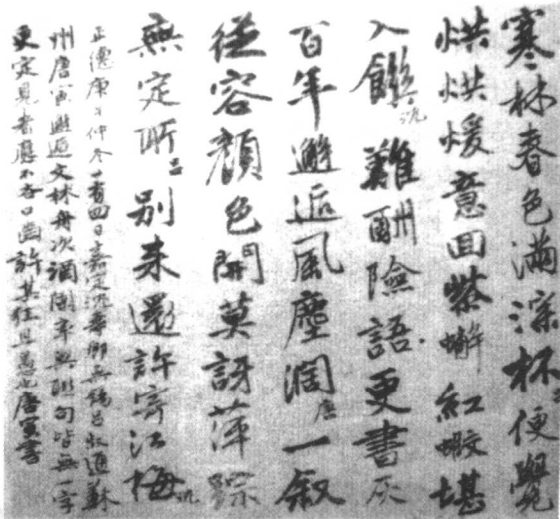 寒林春色滿深杯便覺
烘烘煖意回紫蠏紅蝦堪
入饌沈難酬險語更書灰
百年邂逅風塵濶唐一叙
從容顔色開莫訝萍蹤
無定所呂别來還許寄江梅沈
正德庚午仲冬廿有四日嘉定沈壽卿無錫呂叔通蘇
州唐寅邂逅文林舟次酒闌率興聯句皆無一字
更定見者應不吝口齒許其狂且愚也唐寅書